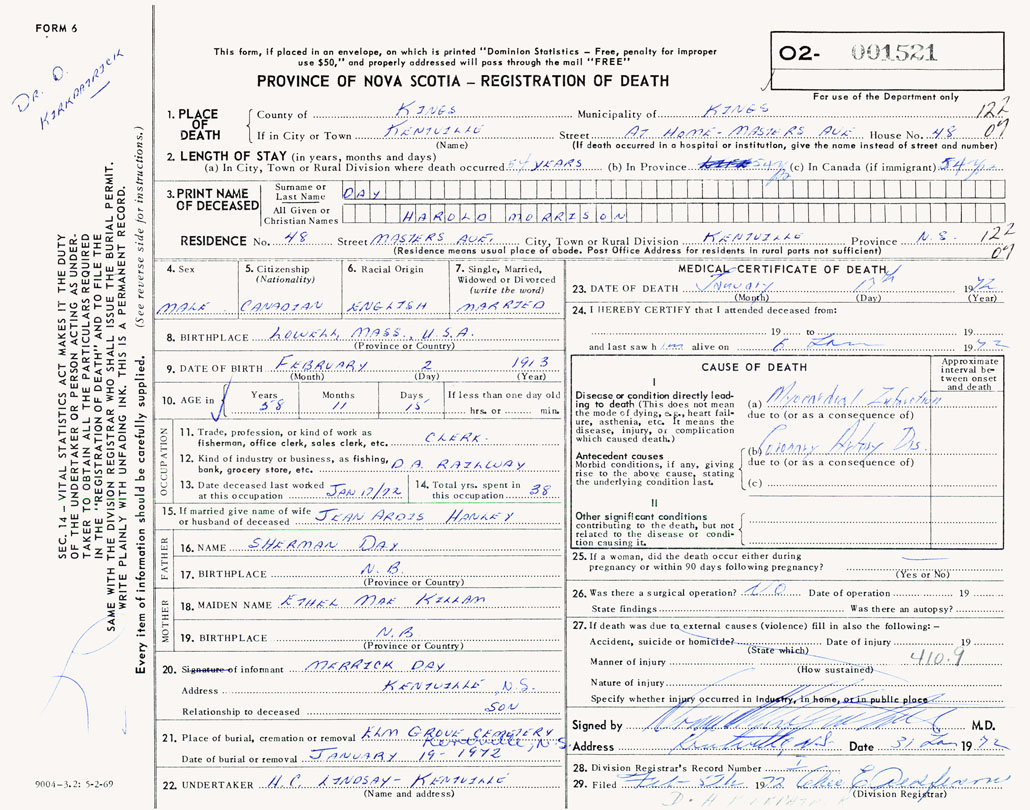 FORM 6
DR. D. KIRKPATRICK
This form, if placed in an envelope, on which is printed "Dominion Statistics – Free, penalty for improper
use $50," and properly addressed will pass through the mail "FREE"
PROVINCE OF NOVA SCOTIA – REGISTRATION OF DEATH
02- 001521
For use of the Department only
1. PLACE OF DEATH
County of KINGS Municipality of KINGS 122
If in City or Town KENTVILLE Street AT HOME - MASTERS AVE House No. 48 07
(Name) (If death occurred in a hospital or institution, give the name instead of street and number)
2. LENGTH OF STAY (in years, months and days)
(a) In City, Town or Rural Division where death occurred 54 YEARS (b) In Province 54 yrs (c) In Canada (if immigrant) 54 yrs
3. PRINT NAME OF DECEASED
Surname or Last Name DAY
All Given or Christian Names HAROLD MORRISON
RESIDENCE No. 48 Street MASTERS AVE. City, Town or Rural Division KENTVILLE Province N.S. 122
(Residence means usual place of abode. Post Office Address for residents in rural parts not sufficient) 07
4. Sex MALE
5. Citizenship (Nationality) CANADIAN
6. Racial Origin ENGLISH
7. Single, Married, Widowed or Divorced (write the word) MARRIED
8. BIRTHPLACE LOWELL, MASS., U.S.A.
(Province or Country)
9. DATE OF BIRTH FEBRUARY 2 1913
(Month) (Day) (Year)
10. AGE in Years 58 Months 11 Days 15 If less than one day old hrs. or min.
OCCUPATION
11. Trade, profession, or kind of work as
fisherman, office clerk, sales clerk, etc. CLERK.
12. Kind of industry or business, as fishing,
bank, grocery store, etc. D.A. RAILWAY
13. Date deceased last worked
at this occupation JAN 17/72
14. Total yrs. spent in
this occupation 38
15. If married give name of wife
or husband of deceased JEAN ARDIS HANLEY
FATHER
16. NAME SHERMAN DAY
17. BIRTHPLACE N.B.
(Province or Country)
MOTHER
18. MAIDEN NAME ETHEL MAE KILLAM
19. BIRTHPLACE N.B
(Province or Country)
20. Signature of informant MERRICK DAY
Address KENTVILLE, N.S.
Relationship to deceased SON
21. Place of burial, cremation or removal ELM GROVE CEMETERY
Kentville, N.S.
Date of burial or removal JANUARY 19 - 1972
22. UNDERTAKER H.C. LINDSAY - KENTVILLE
(Name and address)
MEDICAL CERTIFICATE OF DEATH
23. DATE OF DEATH January 17th 1972
(Month) (Day) (Year)
24. I HEREBY CERTIFY that I attended deceased from:
19 to 19
and last saw him alive on 6 Jan 1972
CAUSE OF DEATH
Approximate interval between onset and death
I
Disease or condition directly lead-
ing to death (This does not mean
the mode of dying, e.g., heart fail-
ure, asthenia, etc. It means the
disease, injury, or complication
which caused death.)
(a) Myocardial Infarction
due to (or as a consequence of)
Antecedent causes
Morbid conditions, if any, giving
rise to the above cause, stating
the underlying condition last.
(b) Coronary Artery Dis.
due to (or as a consequence of)
(c)
II
Other significant conditions
contributing to the death, but not
related to the disease or condi-
tion causing it.
25. If a woman, did the death occur either during
pregnancy or within 90 days following pregnancy?
(Yes or No)
26. Was there a surgical operation? NO Date of operation 19
State findings Was there an autopsy?
27. If death was due to external causes (violence) fill in also the following: –
Accident, suicide or homicide? Date of injury 19
(State which)
Manner of injury 410.9
(How sustained)
Nature of injury
Specify whether injury occurred in Industry, in home, or in public place
Signed by M.D.
Address Kentville N.S. Date 31 Jan 1972
28. Division Registrar's Record Number
29. Filed Feb - 5th 1972
(Division Registrar)
SEC. 14 – VITAL STATISTICS ACT MAKES IT THE DUTY
OF THE UNDERTAKER OR PERSON ACTING AS UNDER-
TAKER TO OBTAIN ALL THE PARTICULARS REQUIRED
IN THE "REGISTRATION OF DEATH" AND TO FILE THE
SAME WITH THE DIVISION REGISTRAR WHO SHALL ISSUE THE BURIAL PERMIT.
WRITE PLAINLY WITH UNFADING INK. THIS IS A PERMANENT RECORD.
Every item of information should be carefully supplied. (See reverse side for instructions.)
9004-3.2: 5-2-69